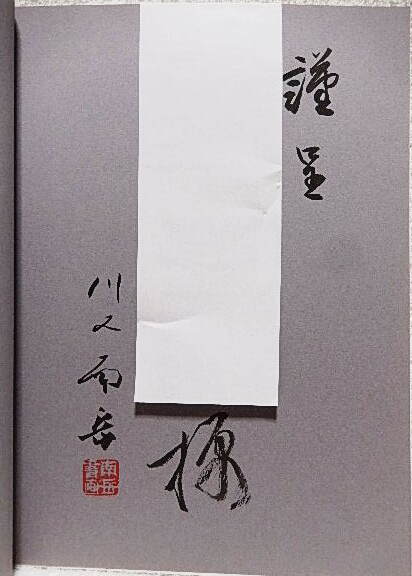 謹呈
様
川又南岳
南岳書画